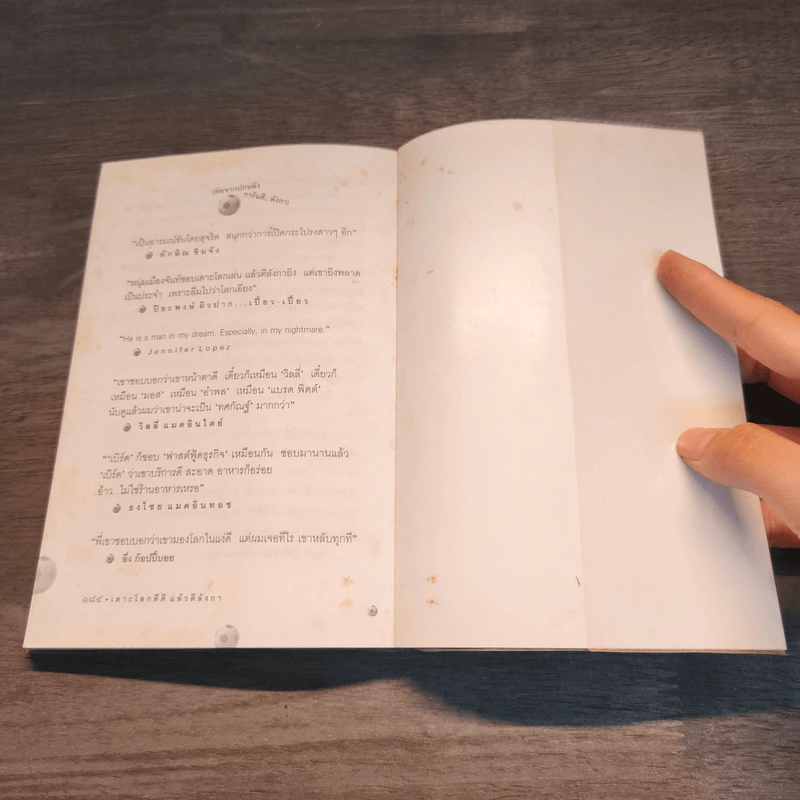 (ต่อจากปกหลัง
การันตี...ลังกา)
“เป็นอารมณ์ขันโดยสุจริต สนุกกว่าการเปิดกระโปรงสาวๆ อีก”
ทักษิณ ขันจัง
“หนุ่มเมืองจันท์ชอบเตาะโลกเล่น แล้วตีลังกายิง แต่เขายิงพลาด
เป็นประจำ เพราะลืมไปว่าโลกเอียง”
ปิยะพงษ์ ผิวปาก...เปี้ยว-เปี้ยว
“He is a man in my dream. Especially, in my nightmare.”
Jennifer Lopez
“เขาชอบบอกว่าเขาหน้าตาดี เดี๋ยวก็เหมือน ‘วิลลี่’ เดี๋ยวก็
เหมือน ‘มอส’ เหมือน ‘อำพล’ เหมือน ‘แบรด พิตต์’
นับดูแล้วผมว่าเขาน่าจะเป็น ‘ทศกัณฐ์’ มากกว่า”
วิลลี่ แมคอินไตย์
“‘เบิร์ด’ ก็ชอบ ‘ฟาสต์ฟู้ดธุรกิจ’ เหมือนกัน ชอบมานานแล้ว
‘เบิร์ด’ ว่าเขาบริการดี สะอาด อาหารก็อร่อย
อ้าว...ไม่ใช่ร้านอาหารเหรอ”
ธงไชย แมคอินทอช
“พี่เขาชอบบอกว่าเขามองโลกในแง่ดี แต่ผมเจอทีไร เขาหลับทุกที”
อึ่ง ก๊อปปี้บอย
๑๘๔ • เตาะโลกดีดี แล้วตีลังกา